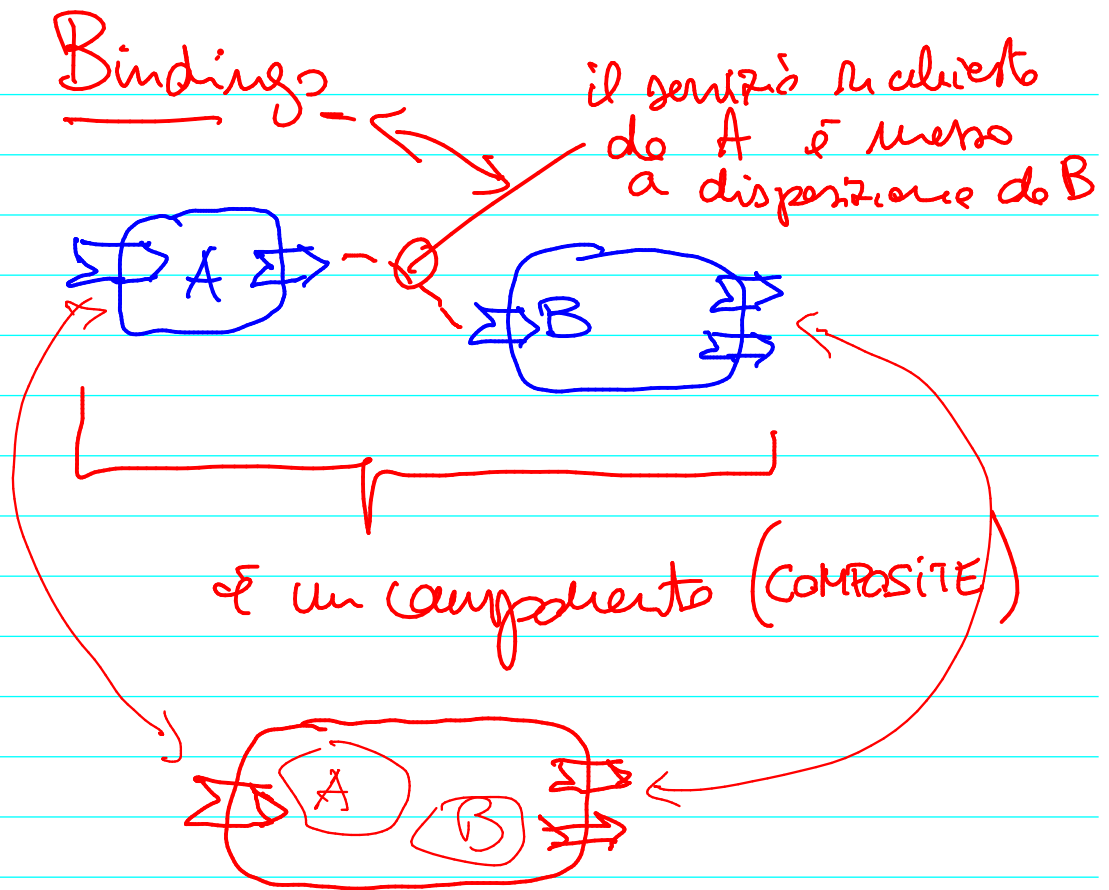 Bindings
il servizio richiesto
da A è messo
a disposizione da B
A
B
è un componente (COMPOSITE)
A
B